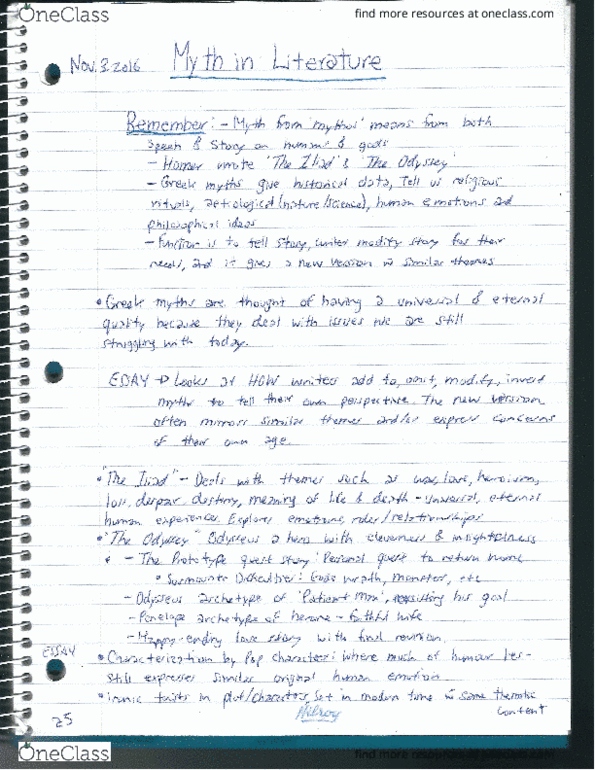 OneClass
find more resources at oneclass.com
Nov. 3 2016
Myth in Literature
Remember: - Myth from "mythos" means from both
Speech & Story on humans & gods
- Homer wrote 'The Iliad' & 'The Odyssey'
- Greek myths give historical data, Tell us religious
rituals, aetiological (nature/science), human emotions and
philosophical ideas
- Function is to tell story, writer modify story for their
needs, and it gives a new version w similar themes
• Greek myths are thought of having a universal & eternal
quality because they deal with issues we are still
struggling with today.
Looks at HOW writers add to, omit, modify, invert
myths to tell their own perspective. The new version
often mirrors similar themes and/or express concerns
of their own age.
• "The Iliad" - Deals with themes such as war, love, heroism,
loss, despair, destiny, meaning of life & death - universal, eternal
human experiences. Explores emotions, roles/relationships
• "The Odyssey" Odysseus a hero with cleverness & insightfulness
- The Prototype quest story: Personal quest to return home
• Surmounts Difficulties: Gods wrath, monster, etc
- Odysseus archetype of 'Patient Man', his goal
- Penelope archetype of heroine - faithful wife
- Happy-ending love story with final reunion.
ESSAY
• Characterization by Pop character: where much of humour lies-
still expresses similar original human emotion
• Ironic twists in plot/character, set in modern time w same thematic
content
25
OneClass
find more resources at oneclass.com